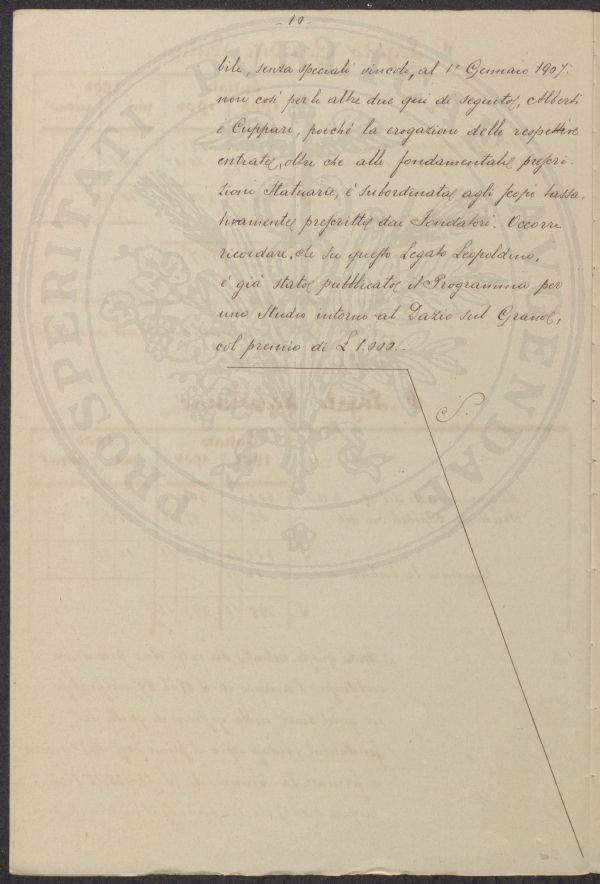 - 10 -
bile, senza speciali vincoli, al 1° Gennaio 1907:
non così per le altre due qui di seguito, Alberti
e Cuppari, poiché la erogazione delle respettive
entrate, oltre che alle fondamentali prescri-
zioni Statuarie, é subordinata agli scopi tassa-
tivamente prescritti dai Fondatori. Occorre
ricordare, che su questo Legato Leopoldino,
é già stato pubblicato il Programma per
uno Studio intorno al Dazio sul Grano,
col premio di £ 1.000.-
PROSPERITATI